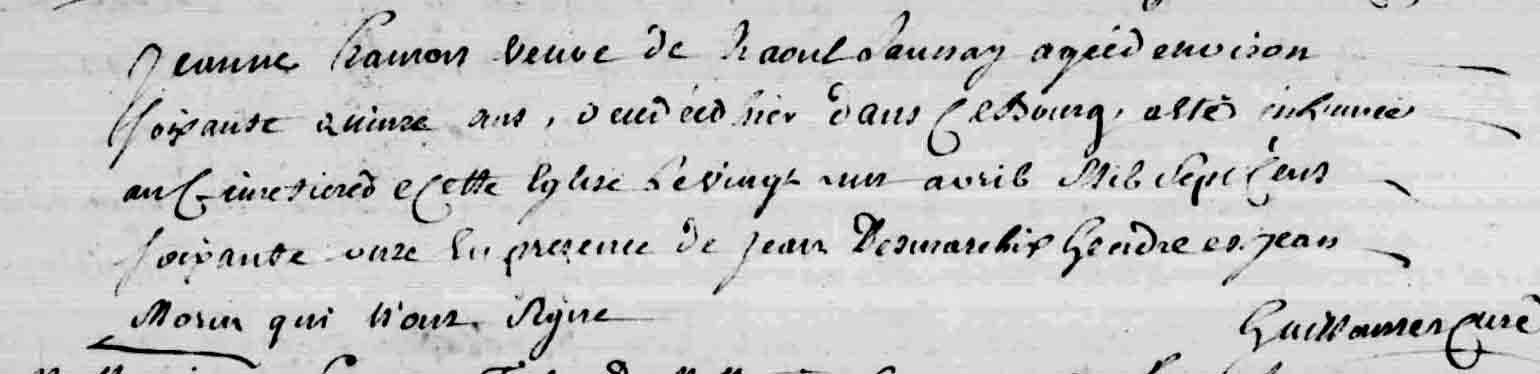 Jeanne hamon veuve de Raoul Launay agéé denviron
soixante quinze ans, décédéé hier dans Ce Bourg, a été inhumée
au Cimetiere de Cette Eglise Le vingt un avril Mil Sept Cens
soixante onze En presence de jean Desmarchix Gendre et jean
Morin qui n'ont Signe
Guillaumer Curé